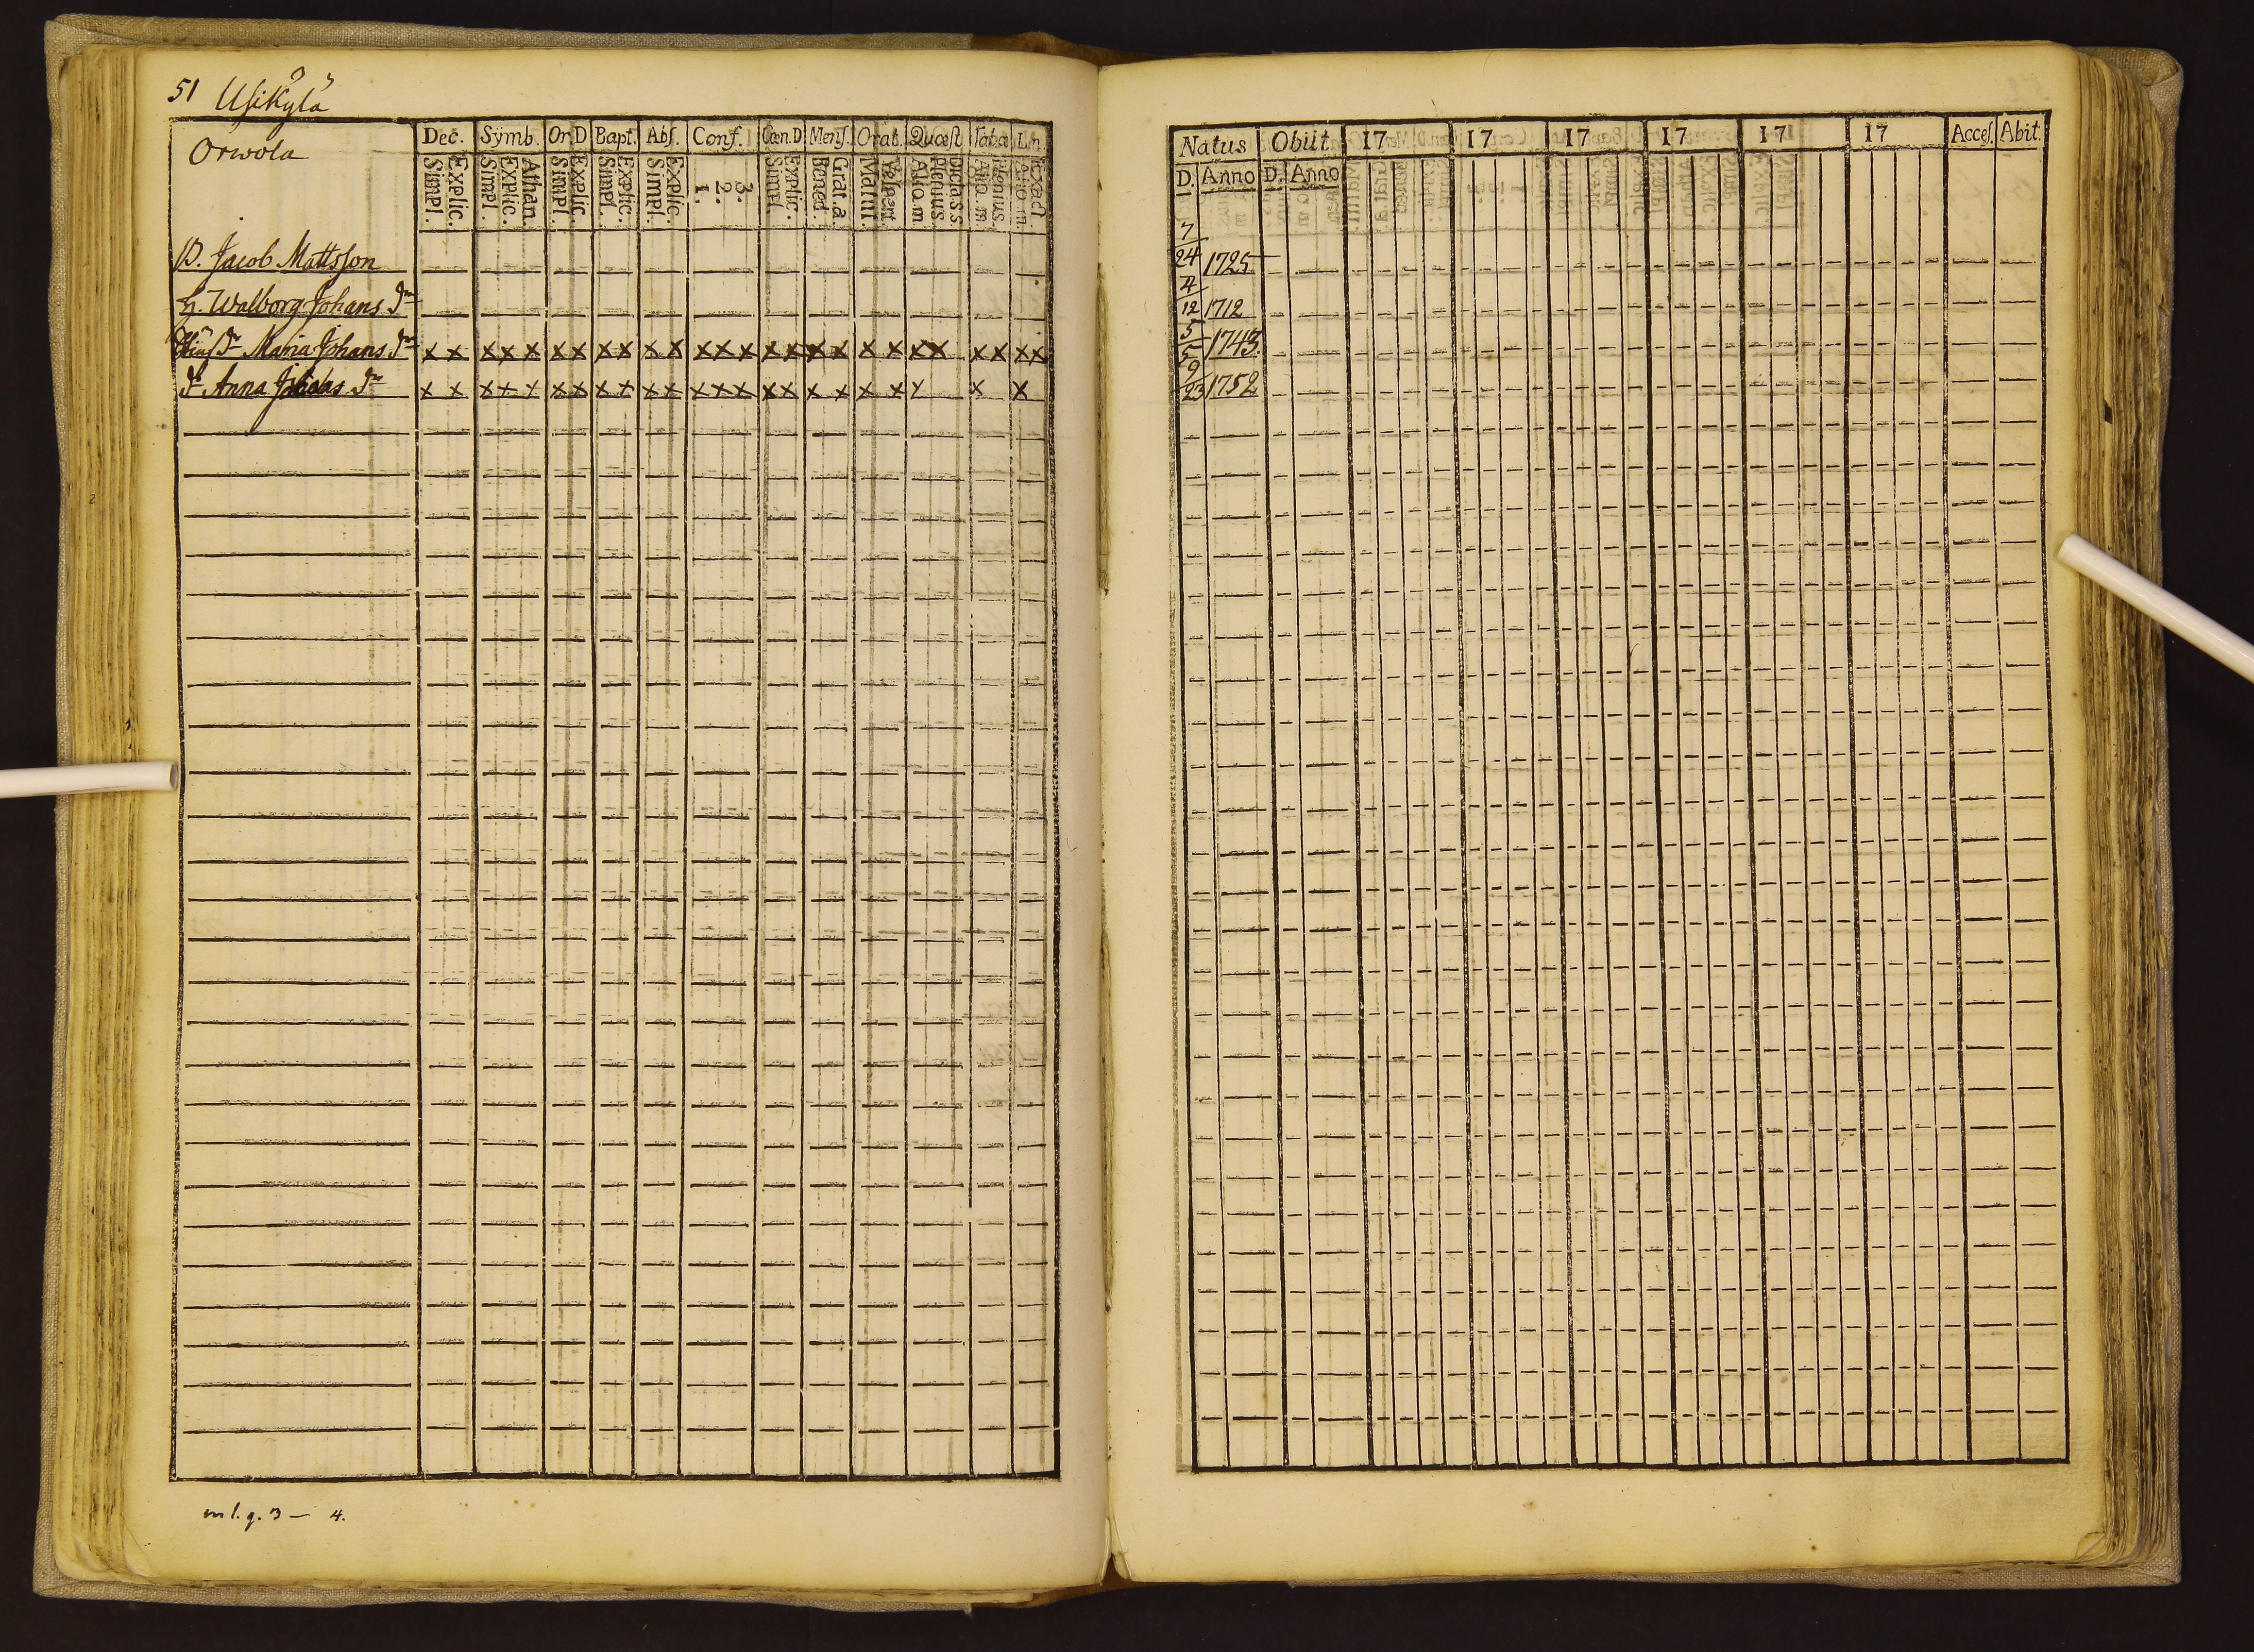 51 Usikylä
Orwola
Dec. Symb. Or.D Bapt. Abs. Conf. Cœn.D Mens. Orat. Quæst Tabæ Lin.
Simpl. Explic. Simpl. Explic. Athan. Simpl. Explic. Simpl. Explic. Simpl. Explic. 1. 2. 3. Simpl. Explic. Bened. Grat.a. Matut. Vespert. Aliq.m Plenius. Dicta.s.s. Aliq.m. Plenius. Aliq.m. Exact
D. Jacob Mattsson
H. Walborg Johans Dr
Maria Johans Dr x x x x x x x x x x x x x x x x x x x x x x x x x
Dr Anna Dr x x x + x x x x + x x x x x x x x x x x x x x
m l. g. 3 — 4.
Natus Obiit 17 17 17 17 17 17 Acces. Abit.
D. Anno D. Anno
7/24 1725
4/12 1712
5/5 1743.
9/23 1752